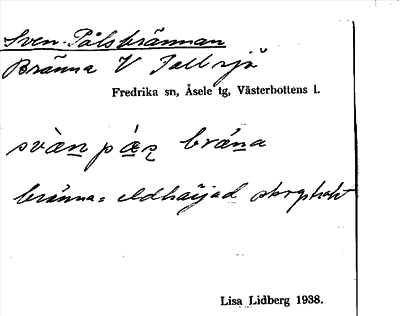 Sven-Pålsbrännan
Bränna V Tallsjö
Fredrika sn, Åsele tg, Västerbottens l.
svàn pά̱ɀ brάna
bränna = eldhärjad
Lisa Lidberg 1938.